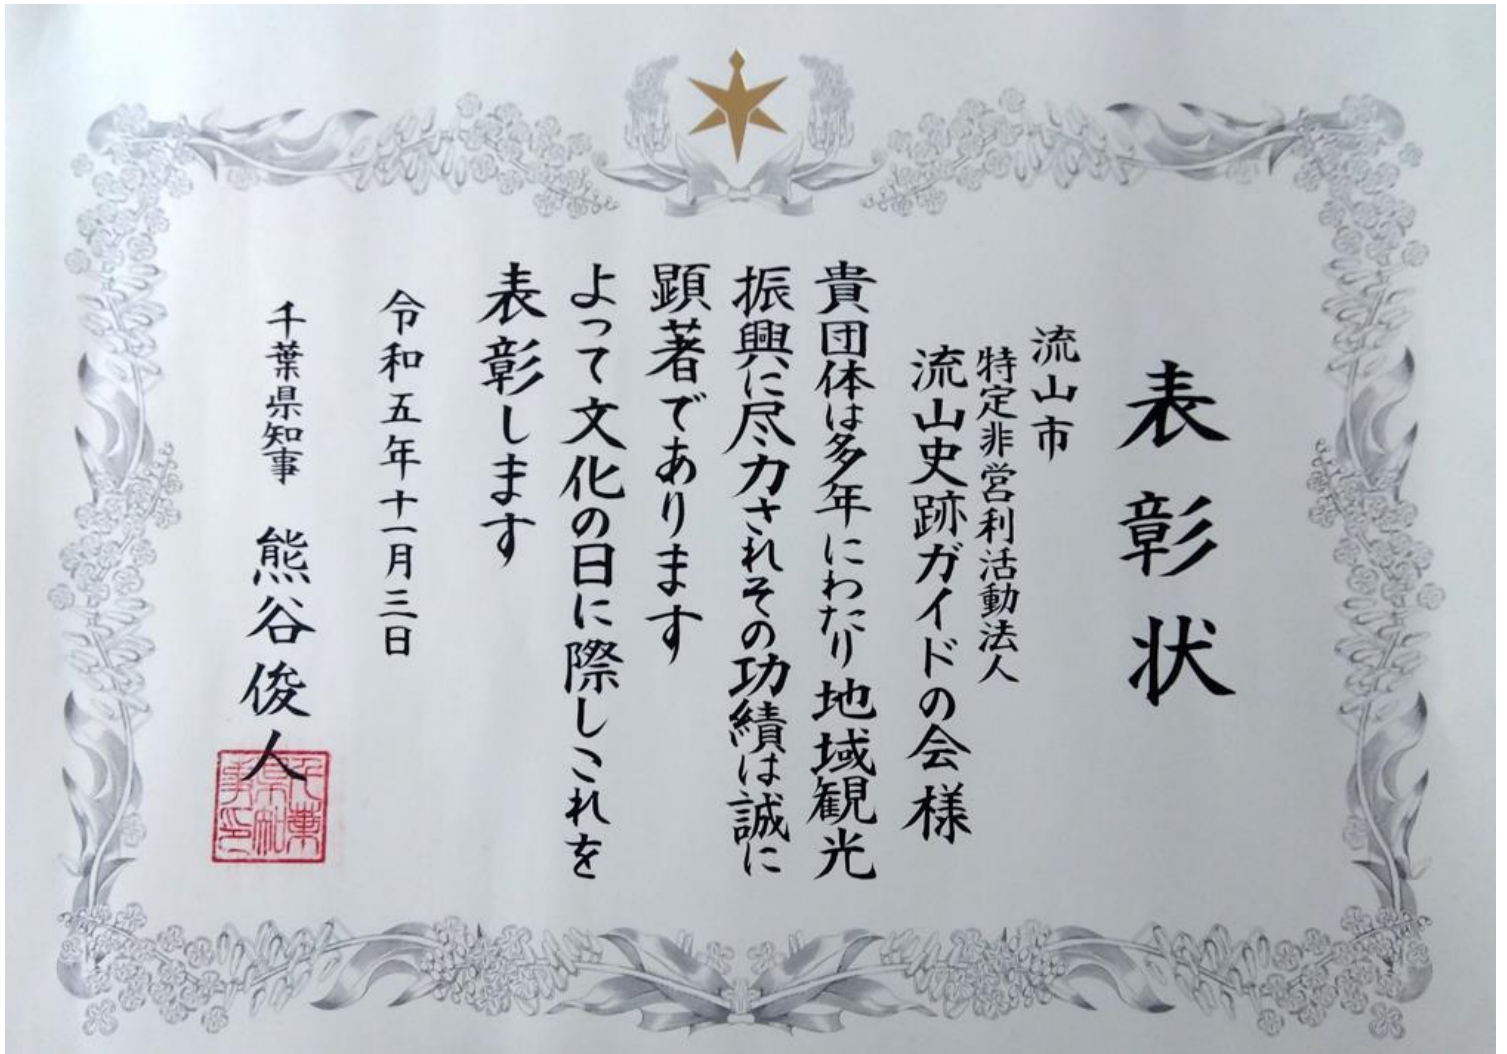 表彰状
流山市
特定非営利活動法人
流山史跡ガイドの会様
貴団体は多年にわたり地域観光
振興に尽力されその功績は誠に
顕著であります
よって文化の日に際しこれを
表彰します
令和五年十一月三日
千葉県知事 熊谷俊人
千葉県知事印